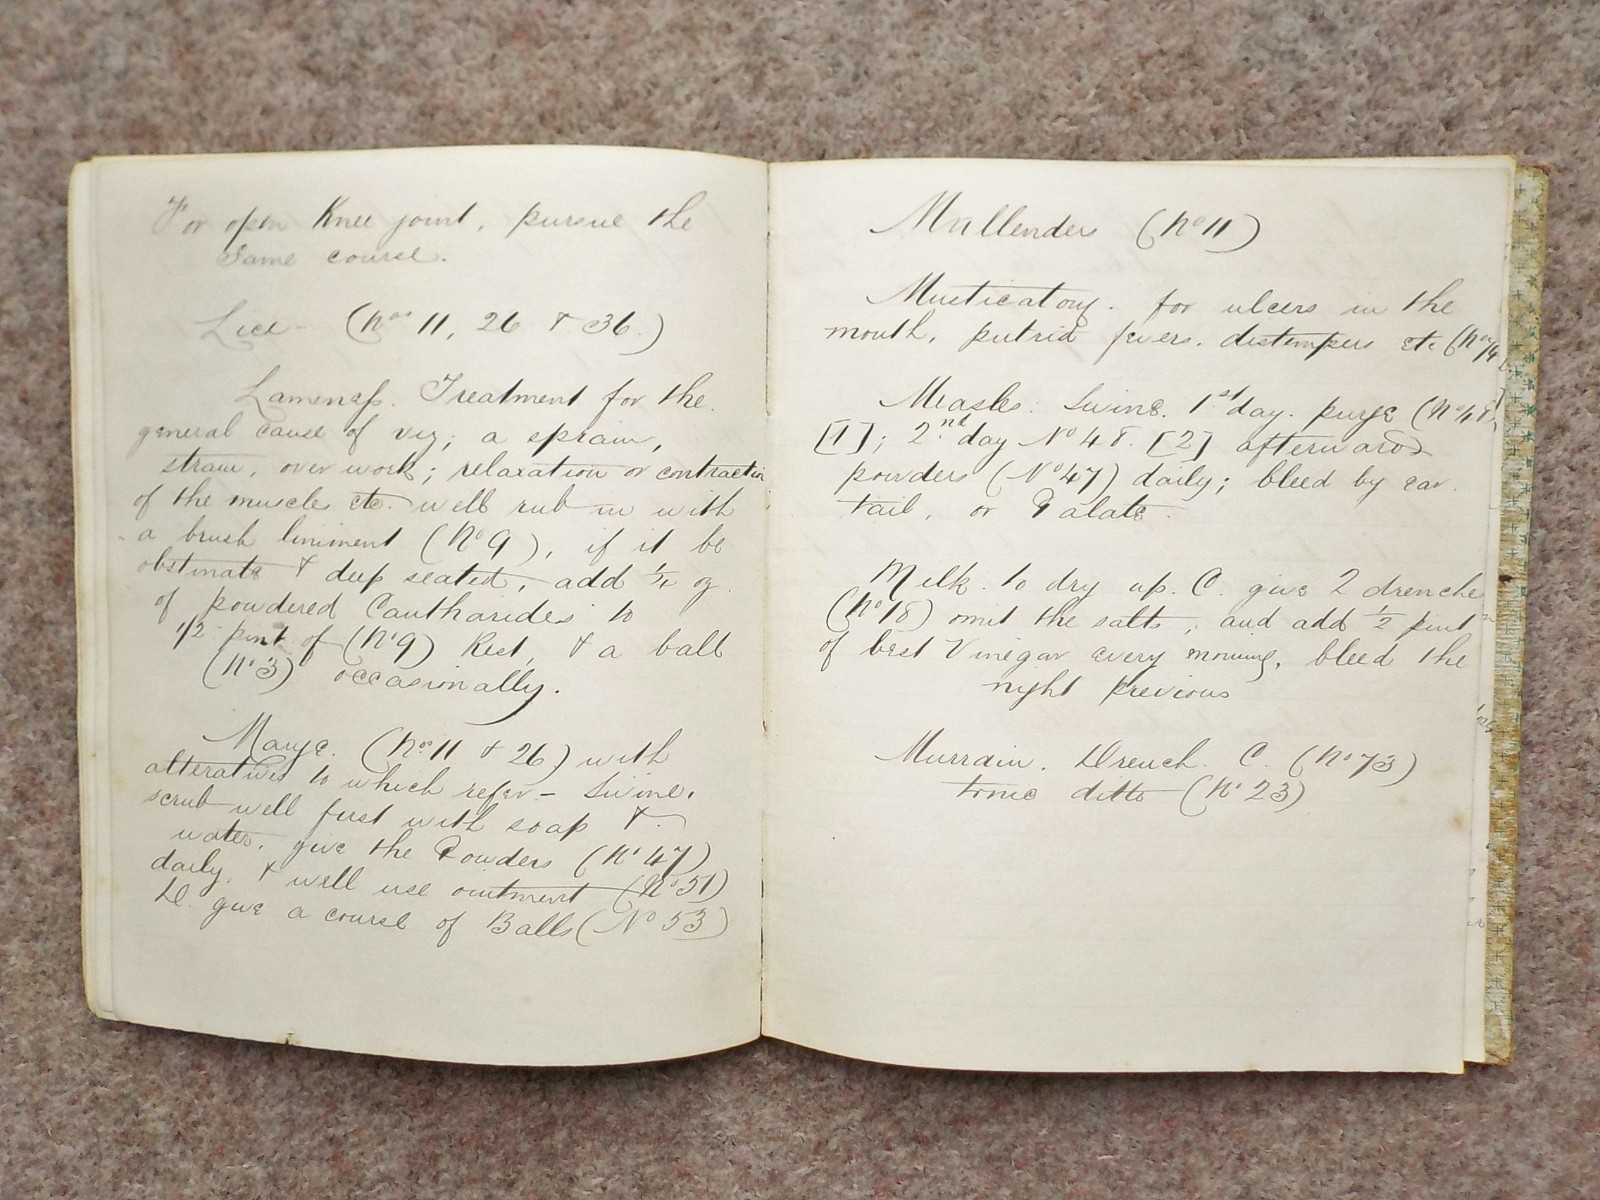 For open Knee joint, pursue the
same course.
Lice - (Nos 11, 26 & 36)
Lameness. Treatment for the
general cause of viz; a sprain,
strain, over work; relaxation or contractio
of the muscles etc. well rub in with
a brush liniment (No 9), if it be
obstinate & deep seated, add 1/4 oz
of powdered Cantharides to
1/2 pint of (No 9) Rest, & a ball
(No 3) occasionally.
Mange. (Nos 11 & 26) with
alteratives to which refer - Swine,
scrub well first with soap &
water, give the Powders (No 47)
daily, & well use ointment (No 51)
D. give a course of Balls (No 53)
Mallenders (No 11)
Masticatory. for ulcers in the
mouth, putrid fevers, distempers etc (No 74
Measles. Swine. 1st day. purge (No 48,
[1]; 2nd day No 48. [2] afterwards
powders (No 47) daily; bleed by ear
tail, or Palate
Milk. to dry up. C. give 2 drenche
(No 18) omit the salts; and add 1/2 pint
of best Vinegar every morning, bleed the
night previous
Murrain. Drench. C. (No 73)
tonic ditto (No 23)